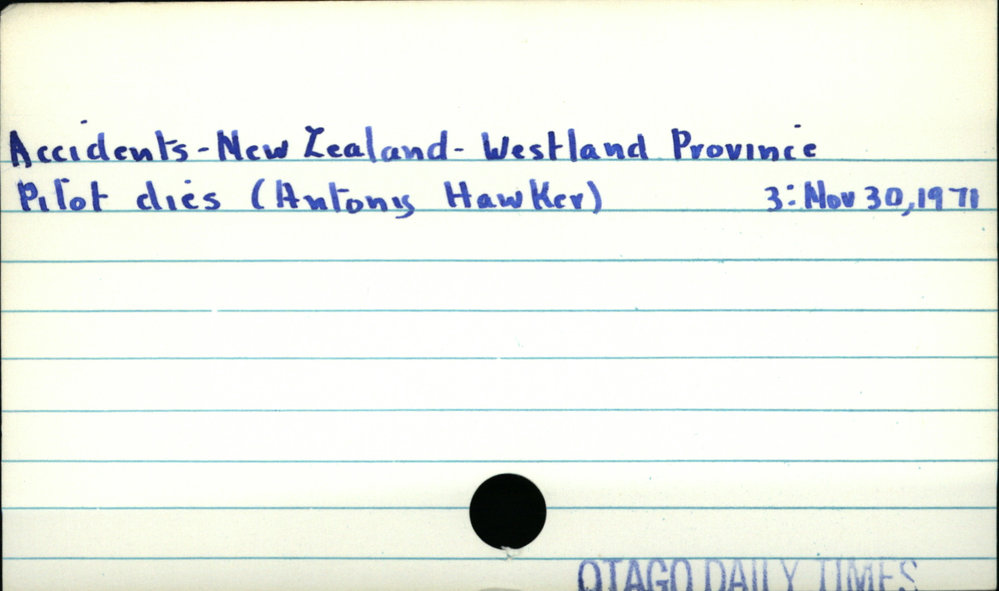 Accidents - New Zealand - Westland Province
Pilot dies (Antony Hawker) 3: Nov 30, 1971
OTAGO DAILY TIMES